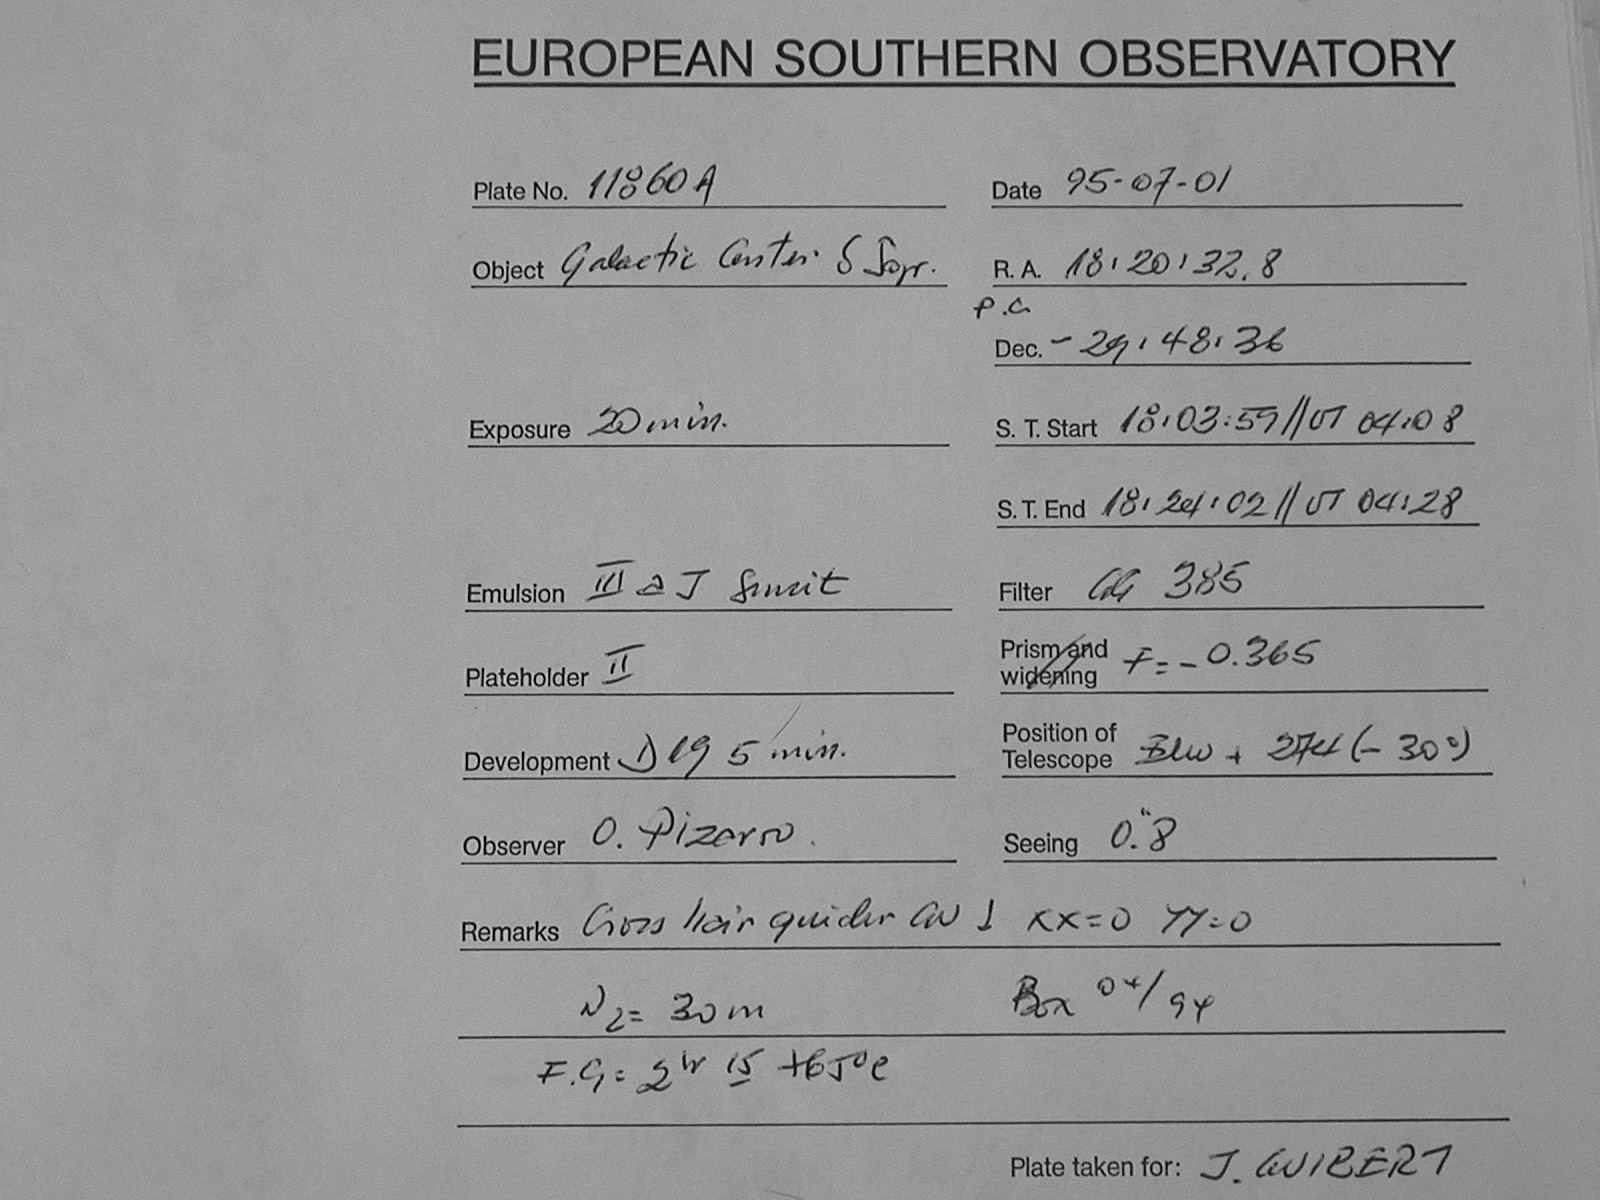 EUROPEAN SOUTHERN OBSERVATORY
Plate No. 11860A Date 95-07-01
Object Galactic Center R.A. 18:20:32.8
Dec. -29:48:36
Exposure 20 min. S. T. Start 18:03:59 // UT 04:08
S. T. End 18:24:02 // UT 04:28
Emulsion III a J Filter GG 385
Plateholder II Prism and widening F = -0.365
Development D19 5 min. Position of Telescope + 274 (-30°)
Observer O. Pizarro. Seeing 0."8
Remarks Cross hair guider XX=0 YY=0
N2= 30m Box 04/94
F.G=
Plate taken for: J. GUIBERT